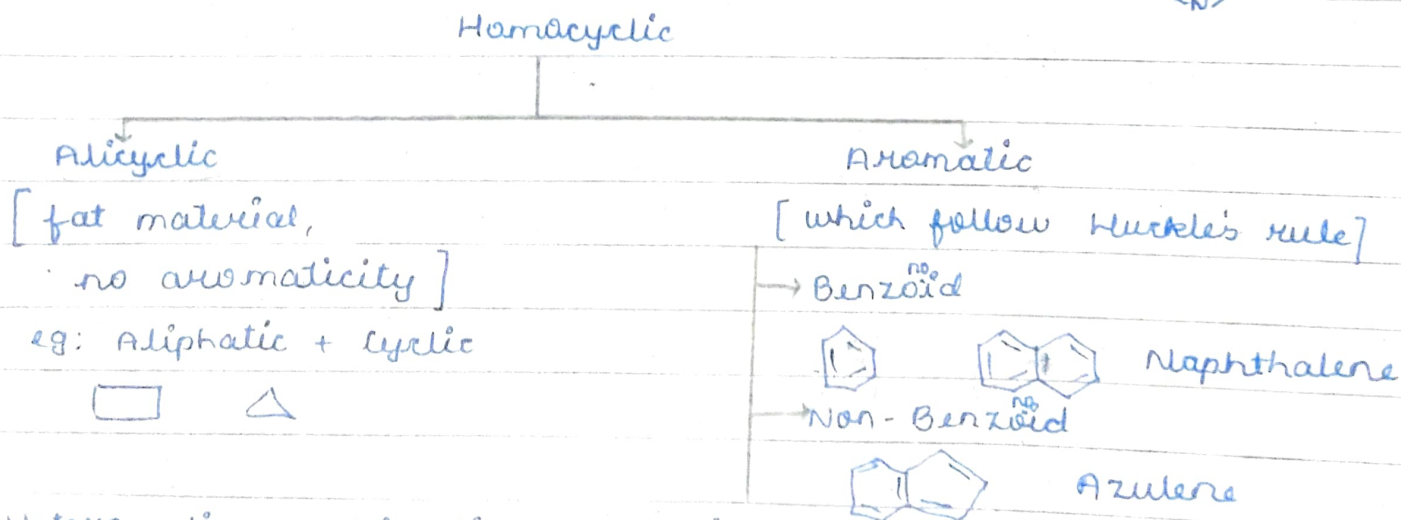 N
Homocyclic
Alicyclic
Aromatic
[ fat material,
no aromaticity ]
eg: Aliphatic + Cyclic
[ which follow Huckle's rule ]
→ Benzoid
Naphthalene
→ Non - Benzoid
Azulene